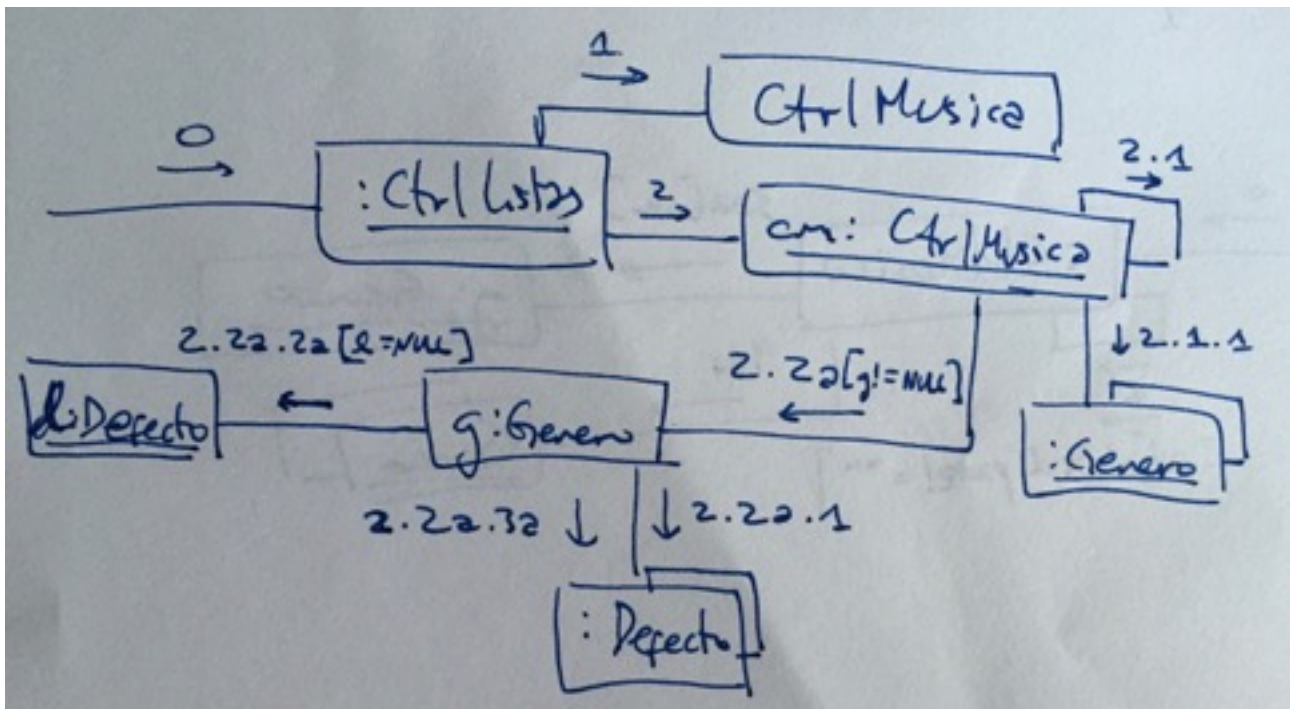 1
CtrlMusica
0
:CtrlListas
2
cm: CtrlMusica
2.1
2.2a.2a[l=NULL]
2.2a[g!=NULL]
↓2.1.1
l:Defecto
g:Genero
:Genero
2.2a.3a ↓
↓ 2.2a.1
:Defecto